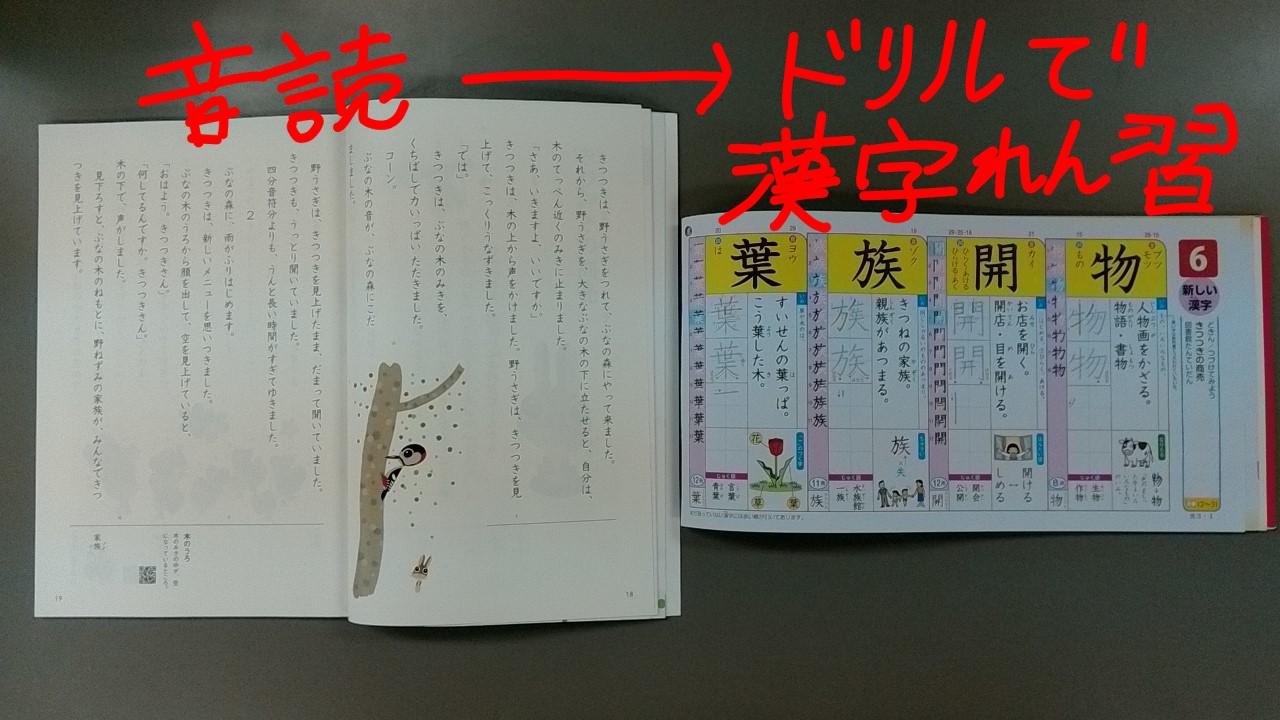 音読 → ドリルで
漢字れん習
きつつきは、野うさぎをつれて、ぶなの森にやって来ました。
それから、野うさぎを、大きなぶなの木の下に立たせると、自分は、
木のてっぺん近くのみきに止まりました。
「さあ、いきますよ、いいですか。」
きつつきは、木の上から声をかけました。野うさぎは、きつつきを見
上げて、こっくりうなずきました。
「では。」
きつつきは、ぶなの木のみきを、
くちばしで力いっぱいたたきました。
コーン。
ぶなの木の音が、ぶなの森にこだ
ましました。
18
野うさぎは、きつつきを見上げたまま、だまって聞いていました。
きつつきも、うっとり聞いていました。
四分音符分よりも、うんと長い時間がすぎてゆきました。
2
ぶなの森に、雨がふりはじめます。
きつつきは、新しいメニューを思いつきました。
ぶなの木のうろから顔を出して、空を見上げていると、
「おはよう。きつつきさん。」
「何してるんですか。きつつきさん。」
木の下で、声がしました。
見下ろすと、ぶなの木のねもとに、野ねずみの家族が、みんなできつ
つきを見上げています。
木のうろ
家族
19
6
新しい
漢字
きつつきの商売
図書館たんていだん
物
ブツ
モツ
もの
人物画をかざる。
物語・書物
物
生物
作物
開
カイ
ひらく・あける
ひらける・あく
お店を開く。
開店 目を開ける。
開ける
↔
しめる
開
開会
公開
族
ゾク
きつねの家族。
親族があつまる。
族
族
水族館
一族
葉
ヨウ
は
すいせんの葉っぱ。
こう葉した木。
花
草
葉
葉
言葉
青葉